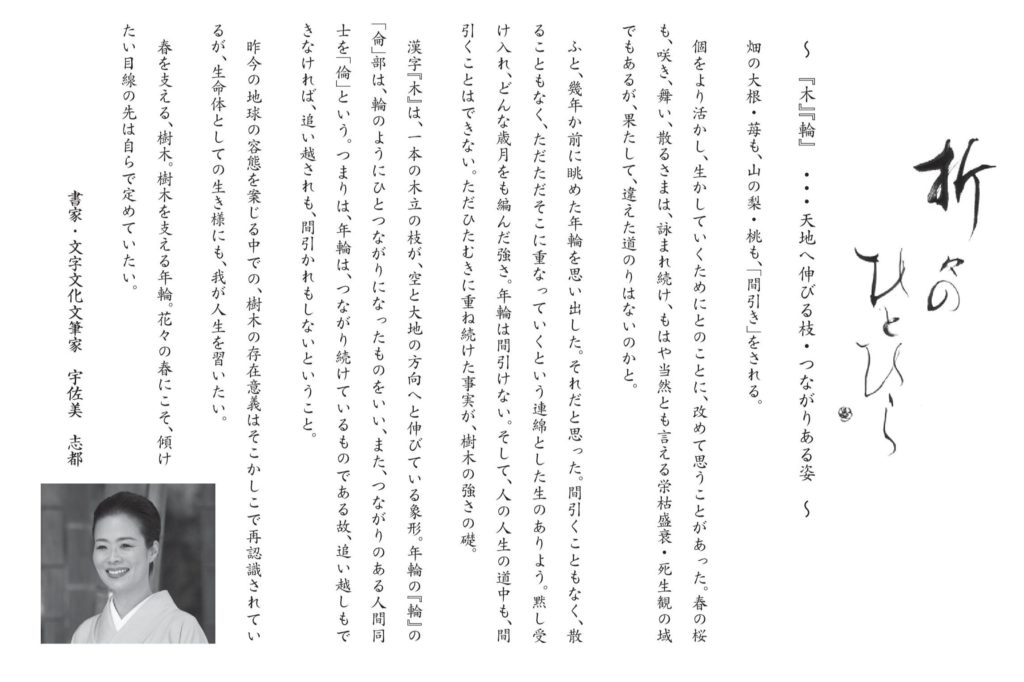 折々の
ひとひら
～　『木』『輪』　・・・天地へ伸びる枝・つながりある姿　～
畑の大根・苺も、山の梨・桃も、「間引き」をされる。
個をより活かし、生かしていくためにとのことに、改めて思うことがあった。春の桜
も、咲き、舞い、散るさまは、詠まれ続け、もはや当然とも言える栄枯盛衰・死生観の域
でもあるが、果たして、違えた道のりはないのかと。
ふと、幾年か前に眺めた年輪を思い出した。それだと思った。間引くこともなく、散
ることもなく、ただただそこに重なっていくという連綿とした生のありよう。黙し受
け入れ、どんな歳月をも編んだ強さ。年輪は間引けない。そして、人の人生の道中も、間
引くことはできない。ただひたむきに重ね続けた事実が、樹木の強さの礎。
漢字『木』は、一本の木立の枝が、空と大地の方向へと伸びている象形。年輪の『輪』の
「侖」部は、輪のようにひとつながりになったものをいい、また、つながりのある人間同
士を「倫」という。つまりは、年輪は、つながり続けているものである故、追い越しもで
きなければ、追い越されも、間引かれもしないということ。
昨今の地球の容態を案じる中での、樹木の存在意義はそこかしこで再認識されてい
るが、生命体としての生き様にも、我が人生を習いたい。
春を支える、樹木。樹木を支える年輪。花々の春にこそ、傾け
たい目線の先は自らで定めていたい。
書家・文字文化文筆家　宇佐美　志都